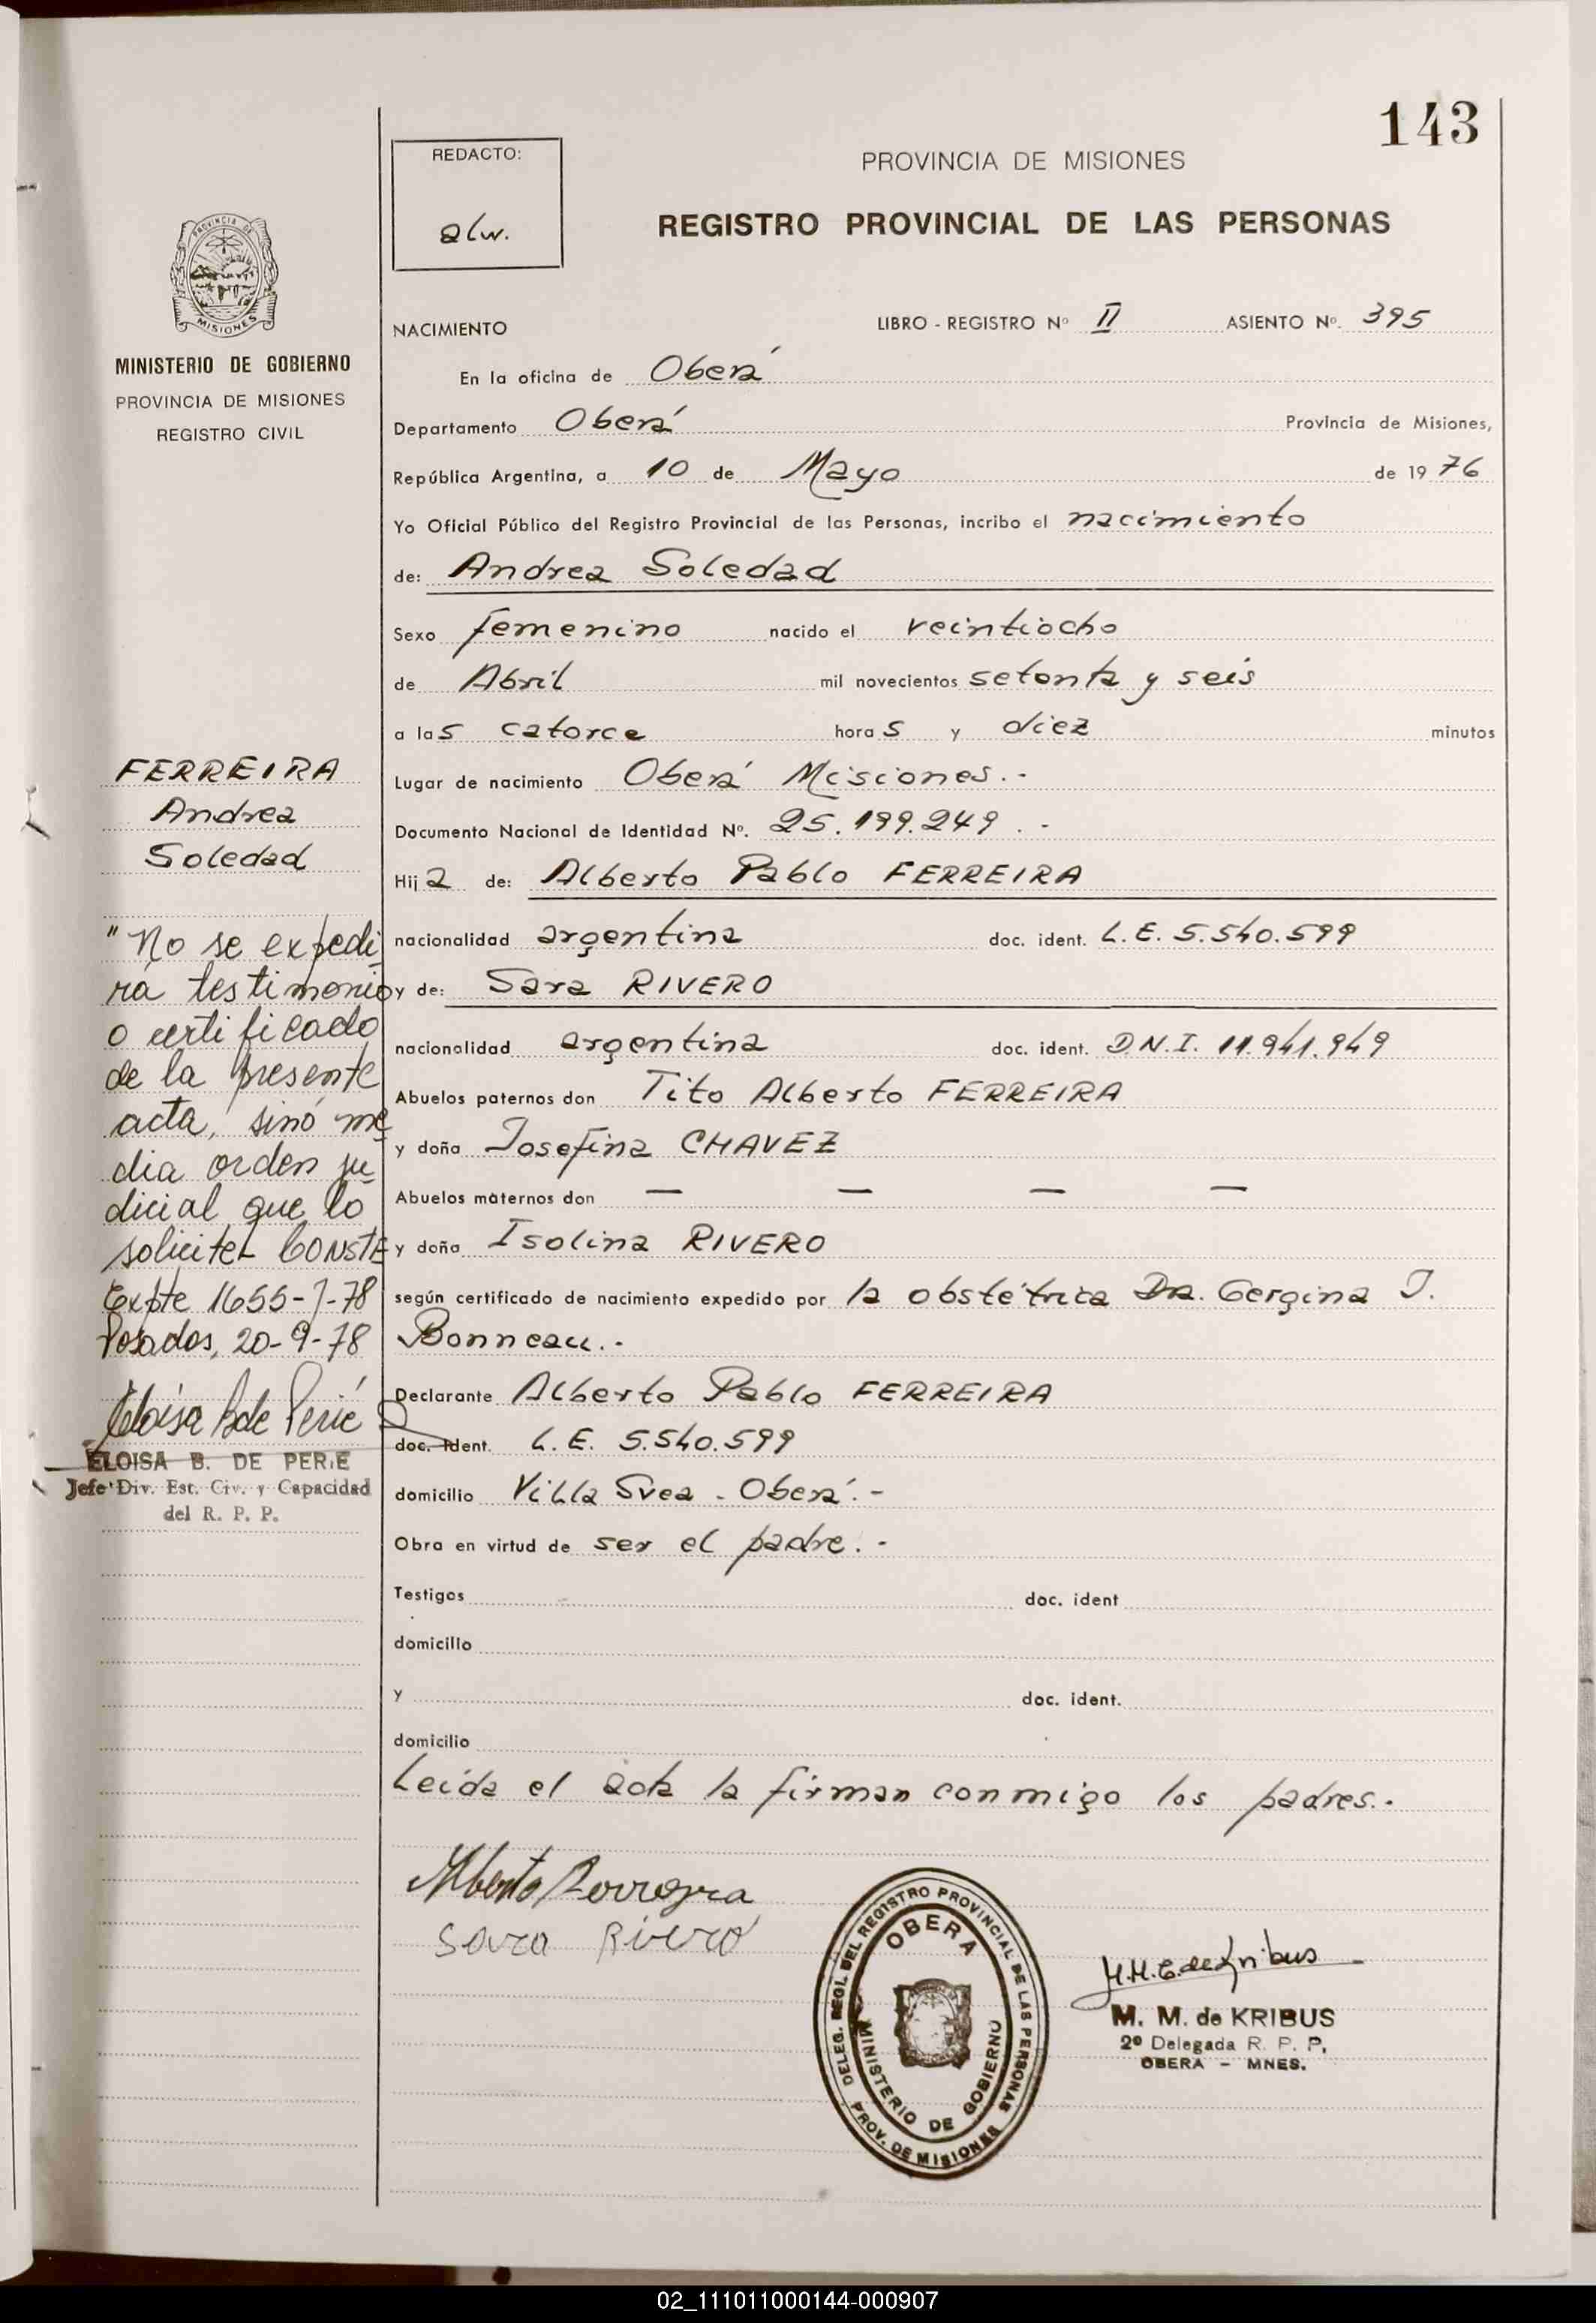 143
REDACTO:
alw.
PROVINCIA DE MISIONES
REGISTRO PROVINCIAL DE LAS PERSONAS
PROVINCIA DE
MISIONES
MINISTERIO DE GOBIERNO
PROVINCIA DE MISIONES
REGISTRO CIVIL
NACIMIENTO LIBRO - REGISTRO Nº II ASIENTO Nº. 395
En la oficina de Oberá
Departamento Oberá Provincia de Misiones,
República Argentina, a 10 de Mayo de 19 76
Yo Oficial Público del Registro Provincial de las Personas, incribo el nacimiento
de: Andrea Soledad
Sexo femenino nacido el veintiocho
de Abril mil novecientos setenta y seis
a las catorce horas y diez minutos
Lugar de nacimiento Oberá Misiones.-
Documento Nacional de Identidad Nº. 25.199.249.-
Hija de: Alberto Pablo FERREIRA
nacionalidad argentina doc. ident. L.E. 5.540.599
y de: Sara RIVERO
nacionalidad argentina doc. ident. D.N.I. 11.941.949
Abuelos paternos don Tito Alberto FERREIRA
y doña Josefina CHAVEZ
Abuelos maternos don — — — —
y doña Isolina RIVERO
según certificado de nacimiento expedido por la obstétrica Dra. Gergina J.
Bonneau.-
Declarante Alberto Pablo FERREIRA
doc. ident. L.E. 5.540.599
domicilio Villa Svea - Oberá.-
Obra en virtud de ser el padre.-
Testigos doc. ident
domicilio
y doc. ident.
domicilio
Leída el acta la firman conmigo los padres.-
FERREIRA
Andrea
Soledad
"No se expedi
rá testimonio
o certificado
de la presente
acta, sinó me
dia orden ju
dicial que lo
solicite- CONSTE
Expte 1655-J-78
Posadas, 20-9-78
Eloisa B de Perié
ELOISA B. DE PERIE
Jefe Div. Est. Civ. y Capacidad
del R. P. P.
Alberto Ferreyra
Sara Rivero
DELEG. REGI. DEL REGISTRO PROVINCIAL DE LAS PERSONAS
PROV. DE MISIONES
OBERA
MINISTERIO DE GOBIERNO
M.M.C.de Kribus
M. M. de KRIBUS
2º Delegada R. P. P.
OBERA - MNES.
02_111011000144-000907